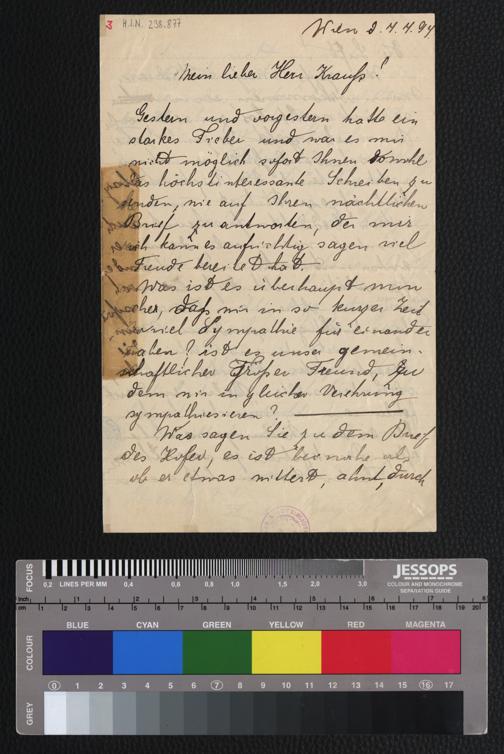 3 H.I.N. 238.877
Wien d. 4.4.94
Mein lieber Herr Krauß!
Gestern und vorgestern hatte ein
starkes Fieber und war es mir
nicht möglich sofort Ihnen sowohl
das höchst interessante Schreiben zu
senden, wie auf Ihren nächtlichen
Brief zu antworten, der mir
ich kann es aufrichtig sagen viel
Freude bereitet hat.
Was ist es überhaupt nun
daß wir in so kurzer Zeit
so viel Sympathie für einander
haben? ist es unser gemein-
schaftlicher großer Freund, zu
dem wir in gleicher Verehrung
sympathiesieren?
Was sagen Sie zu dem Brief
des Hofer, es ist beinahe als
ob er etwas wittert, ahnt, durch
FOCUS
0,2 LINES PER MM 0,4 0,6 0,8 1,0 1,5 2,0 3,0
JESSOPS
COLOUR AND MONOCHROME
SEPARATION GUIDE
inch 1 2 3 4 5 6 7 8
cm 1 2 3 4 5 6 7 8 9 10 11 12 13 14 15 16 17 18 19 20
COLOUR
BLUE CYAN GREEN YELLOW RED MAGENTA
GREY
0 1 2 3 4 5 6 7 8 9 10 11 12 13 14 15 16 17